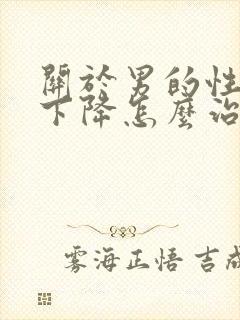 關於男的性
下降怎麼治
雾海正悟 吉成